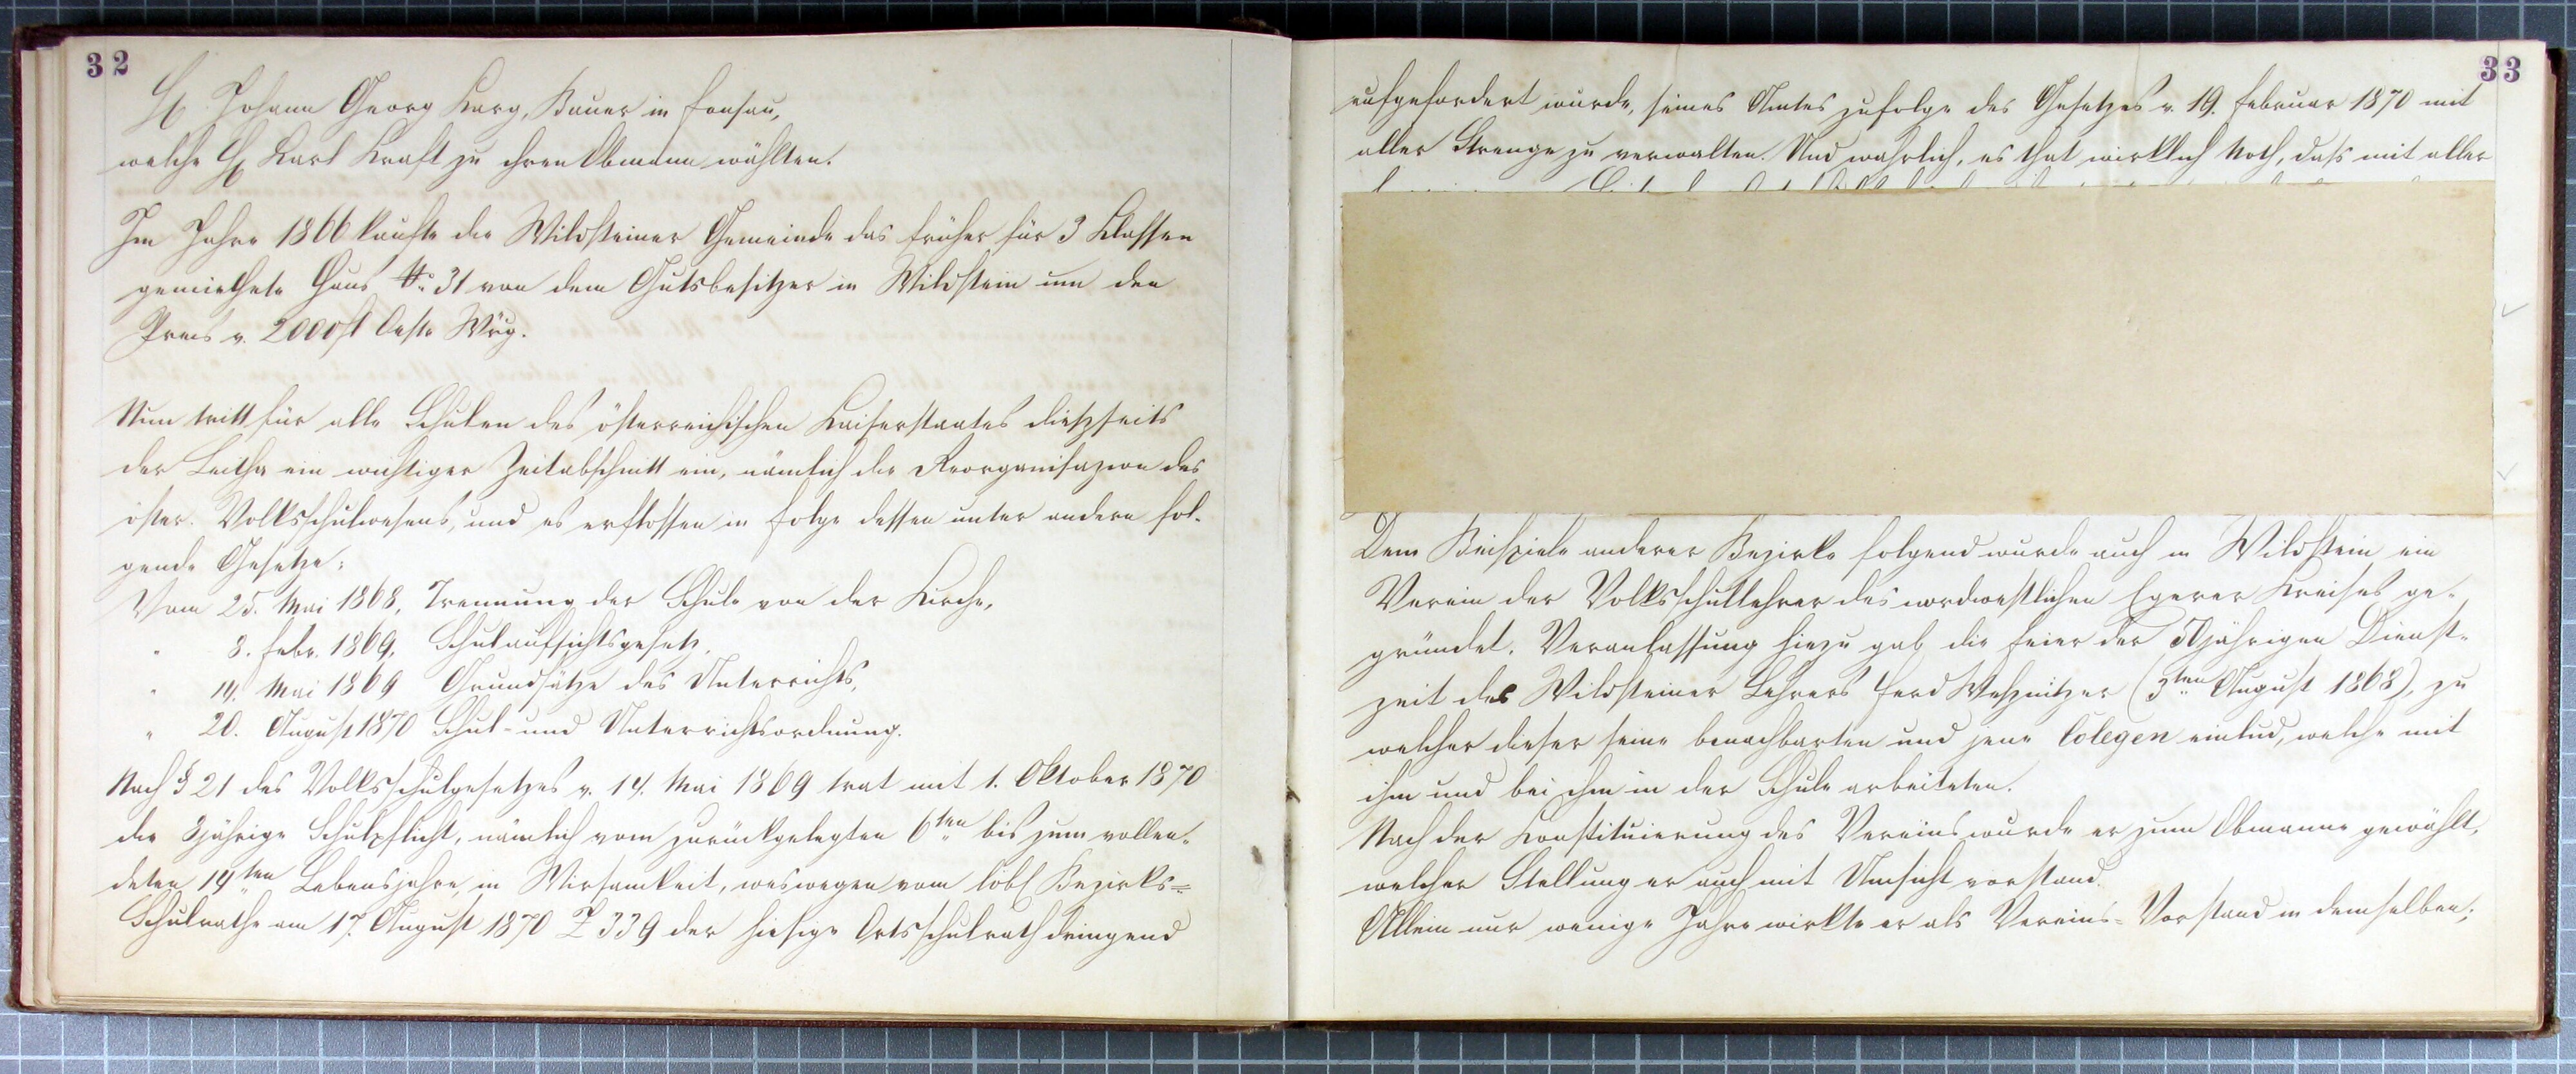 32
H Johann Georg Karg, Bauer in Fonsau,
welche H Karl Kraft zu ihren Obmann wählten.
Im Jahre 1866 kaufte die Wildsteiner Gemeinde das früher für 3 Klassen
gemiethete Haus No 31 von dem Gutsbesitzer in Wildstein um den
Preis v. 2000 fl Oestr Whrg.
Nun tritt für alle Schulen des österreichischen Kaiserstaates diesseits
der Leitha ein wichtiger Zeitabschnitt ein, nämlich die Reorganisazion des
öster. Volksschulwesens, und es erflossen in Folge dessen unter andern fol-
gende Gesetze:
Vom 25. Mai 1868, Trennung der Schule von der Kirche,
" 8. Febr. 1869, Schulaufsichtsgesetz,
" 14. Mai 1869 Grundsätze des Unterrichts,
" 20. August 1870 Schul- und Unterrichtsordnung.
Nach § 21 des Volksschulgesetzes v. 14. Mai 1869 trat mit 1. Oktober 1870
die 8jährige Schulpflicht, nämlich vom zurückgelegten 6ten bis zum vollen-
deten 14ten Lebensjahre, in Wirksamkeit, weswegen vom löbl Bezirks=
Schulrathe am 17. August 1870 Z 339 der hiesige Ortsschulrath dringend
33
aufgefordert wurde, seines Amtes zufolge des Gesetzes v. 19. Februar 1870 mit
aller Strenge zu verwalten. Und wahrlich, es that wirklich Noth, daß mit aller
Dem Beispiele anderer Bezirke folgend wurde auch in Wildstein ein
Verein der Volksschullehrer des nordwestlichen Egerer Kreises ge-
gründet. Veranlassung hiezu gab die Feier der 50jährigen Dienst-
zeit des Wildsteiner Lehrers Ferd (3ten August 1868), zu
welcher dieser seine benachbarten und jene Colegen einlud, welche mit
ihm und bei ihm in der Schule arbeiteten.
Nach der Konstituierung des Vereins wurde er zum Obmanne gewählt,
welcher Stellung er auch mit Umsicht vorstand.
Allein nur wenige Jahre wirkte er als Vereins-Vorstand in demselben;